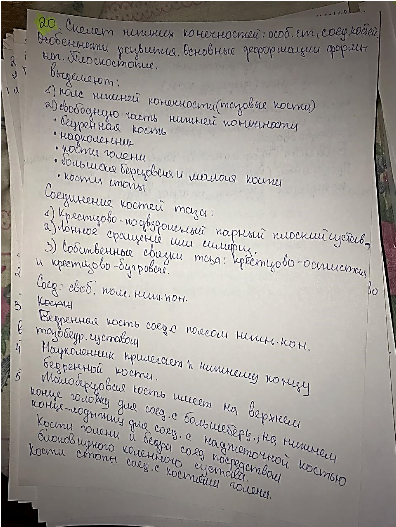 20. Скелет нижних конечностей: особ. ст, соед. костей
Особенности развития. Основные деформации
Плоскостопие.
Выделяют:
1) пояс нижней конечности (тазовые кости)
2) свободную часть нижней конечности
• бедренная кость
• надколенник
• кости голени
• большая берцовая и малая кости
• кости стопы
Соединение костей таза:
1) Крестцово-подвздошный парный плоский сустав,
2) Лонное сращение или симфиз,
3) Собственные связки таза: крестцово-остистая
и крестцово-бугровая.
Соед. своб. пояс. ниж. кон.
Кости
Бедренная кость соед. с поясом нижн. кон.
тазобедр. суставом
Надколенник прилегает к нижнему концу
бедренной кости.
Малоберцовая кость имеет на верхнем
конце головку для соед. с большеберц., на нижнем
конце-лодыжку для соед. с надпяточной костью
Кости голени и бедра соед. посредством
блоковидного коленного сустава.
Кости стопы соед. с костями голени.